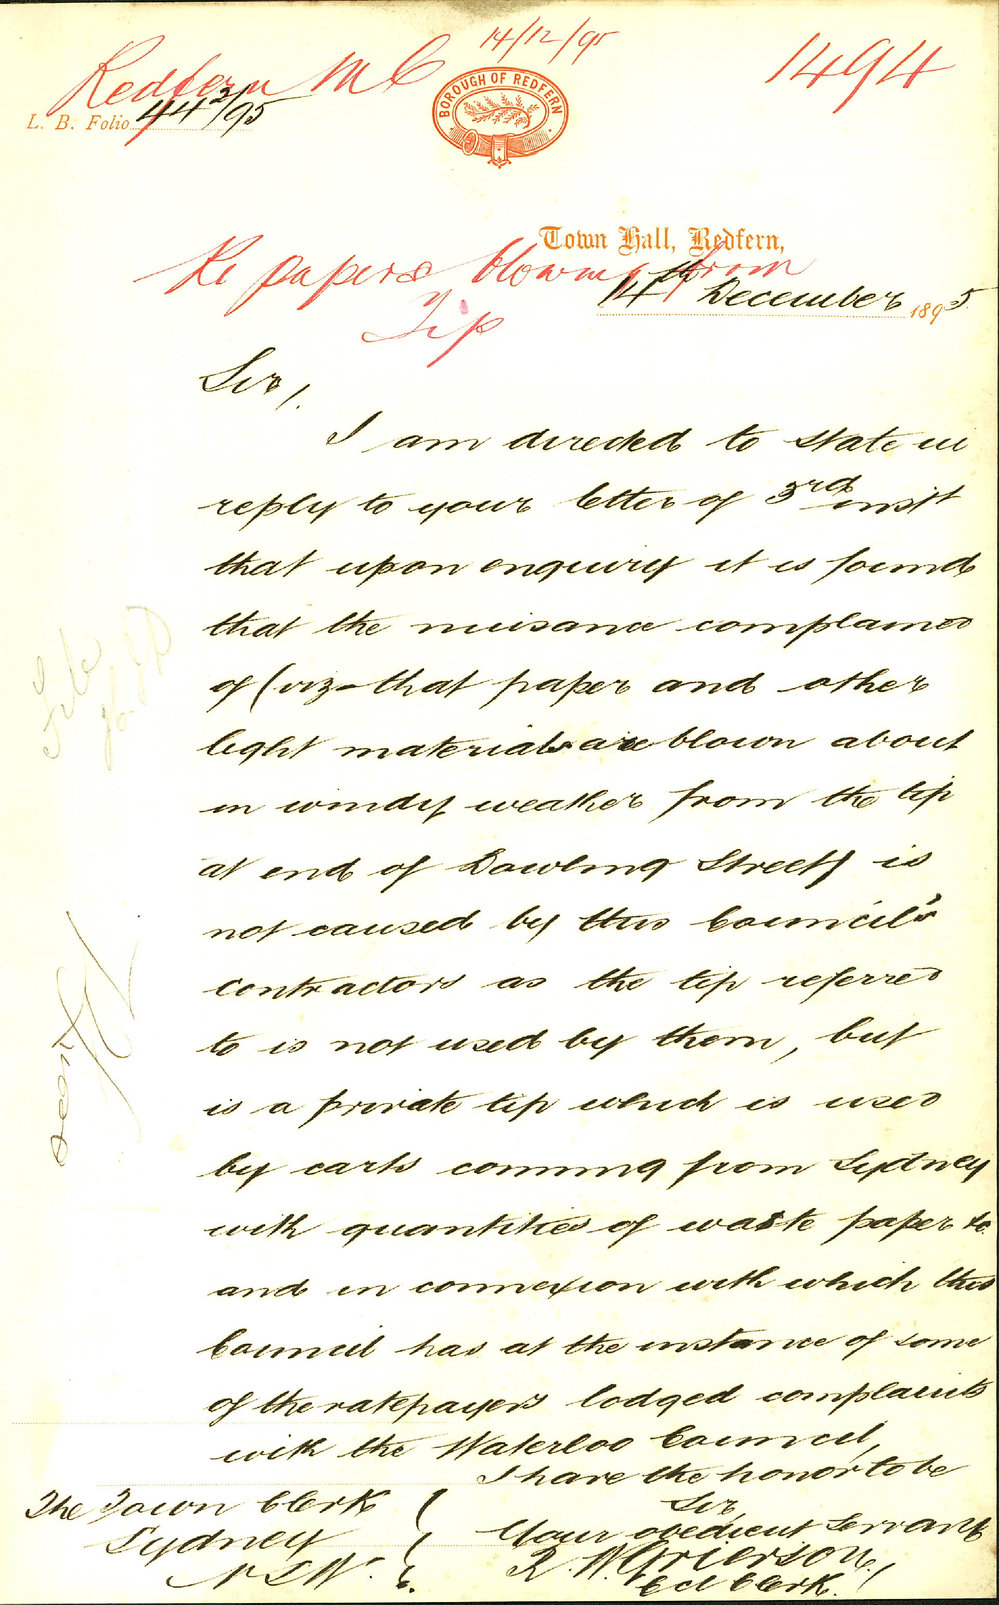 14/12/95
Redfern M C
1494
L. B. Folio 442/95
BOROUGH OF REDFERN
Town Hall, Redfern,
Re papers blowing from
Tip
14th December 1895
Sir,
I am directed to state in
reply to your letter of 3rd inst
that upon enquiry it is found
that the nuisance complained
of (viz - that paper and other
light materials are blown about
in windy weather from the tip
at end of Dowling Street) is
not caused by this Council's
contractors as the tip referred
to is not used by them, but
is a private tip which is used
by carts comming from Sydney
with quantities of waste paper &c
and in connexion with which this
Council has at the instance of some
of the ratepayers lodged complaints
with the Waterloo Council,
I have the honor to be
Sir,
Your obedient Servant
R. W. Grierson
Ccl Clerk.
The Town Clerk
Sydney
N S W.